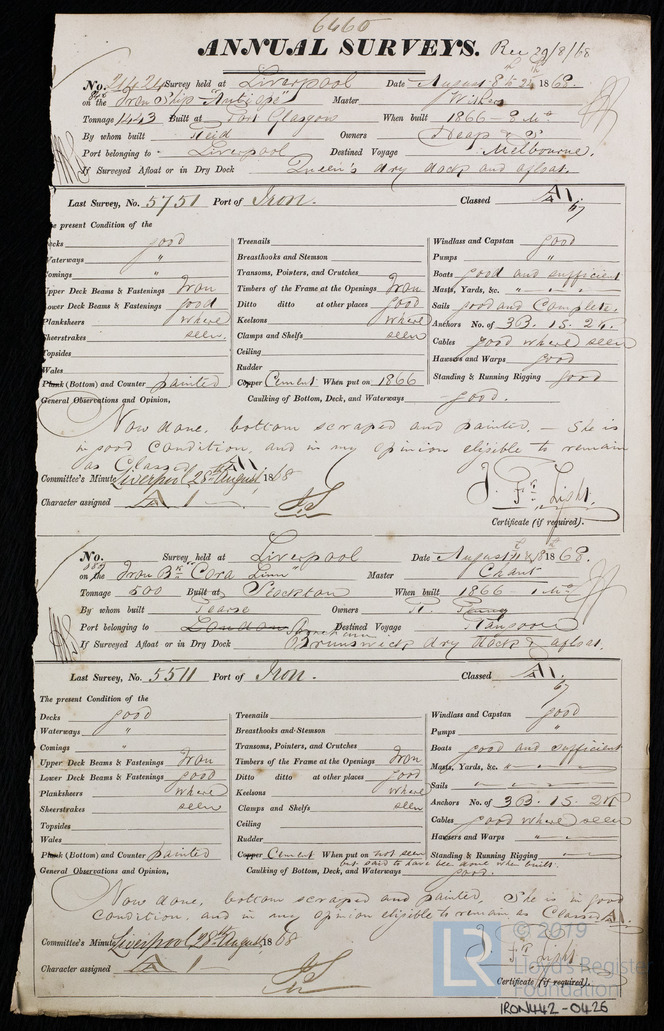 6460
ANNUAL SURVEYS. Rec 29/8/68
No. 21424 Survey held at Liverpool Date August 1868.
on the Iron Ship "Antiope" Master
Tonnage 1443 Built at Port Glasgow When built 1866 - 8 Mo
By whom built Reid Owners Heap &
Port belonging to Liverpool Destined Voyage Melbourne.
If Surveyed Afloat or in Dry Dock Queen's dry dock and afloat.
Last Survey, No. 5751 Port of Iron. Classed A1 67
he present Condition of the
ecks good Treenails Windlass and Capstan good
Waterways " Breasthooks and Stemson Pumps "
Comings " Transoms, Pointers, and Crutches Boats good and sufficient
Upper Deck Beams & Fastenings Iron Timbers of the Frame at the Openings Iron Masts, Yards, &c. " " "
Lower Deck Beams & Fastenings good Ditto ditto at other places good Sails good and Complete.
Planksheers where Keelsons where Anchors No. of 3B. 1S. 2K.
Sheerstrakes seen. Clamps and Shelfs seen Cables good where seen
Topsides Ceiling Hawsers and Warps good
Wales Rudder Standing & Running Rigging good
Plank (Bottom) and Counter painted Copper Cement When put on 1866
General Observations and Opinion, Caulking of Bottom, Deck, and Waterways good.
Now done, bottom scraped and painted. - She is
in good condition, and in my opinion eligible to remain
as Classed A1
Committee's Minute Liverpool 28th August, 1868
Character assigned A 1
J. Fr. Light.
Certificate (if required).
No. Survey held at Liverpool Date August 1868.
on the Iron Bk "Cora Linn" Master Chant
Tonnage 500 Built at Stockton When built 1866 - 1 Mo
By whom built Pearse Owners
Port belonging to London Destined Voyage Rangoon
If Surveyed Afloat or in Dry Dock Brunswick dry dock & afloat.
Last Survey, No. 5511 Port of Iron. Classed A1. 67
The present Condition of the
Decks good Treenails Windlass and Capstan good
Waterways " Breasthooks and Stemson Pumps "
Comings " Transoms, Pointers, and Crutches Boats good and sufficient
Upper Deck Beams & Fastenings Iron Timbers of the Frame at the Openings Iron Masts, Yards, &c. " " "
Lower Deck Beams & Fastenings good Ditto ditto at other places good Sails " " "
Planksheers where Keelsons where Anchors No. of 3B. 1S. 2K
Sheerstrakes seen Clamps and Shelfs seen Cables good where seen
Topsides Ceiling Hawsers and Warps " "
Wales Rudder
Plank (Bottom) and Counter painted Copper Cement When put on not seen Standing & Running Rigging "
but said to have been done when built.
General Observations and Opinion, Caulking of Bottom, Deck, and Waterways good.
Now done, bottom scraped and painted. She is in good
condition, and in my opinion eligible to remain as Classed A1.
Committee's Minute Liverpool, 28th August, 1868
Character assigned A 1
J. Fr. Light
Certificate (if required).
LR © 2019
Lloyd's Register
Foundation
IRON442-0426